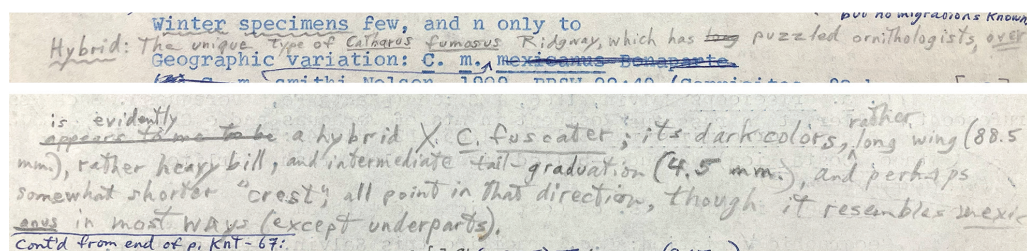 but no migrations known
Winter specimens few, and n only to
Hybrid: The unique type of Catharus fumosus Ridgway, which has long puzzled ornithologists, over
Geographic variation: C. m. mexicanus Bonaparte.
smithi Nelson
is evidently rather
appears to me to be a hybrid X C. fuscater; its dark colors, long wing (88.5
mm.), rather heavy bill, and intermediate tail-graduation (4.5 mm.), and perhaps
somewhat shorter "crest", all point in that direction, though it resembles mexic
anus in most ways (except underparts).
Cont'd from end of p. KnT-67: